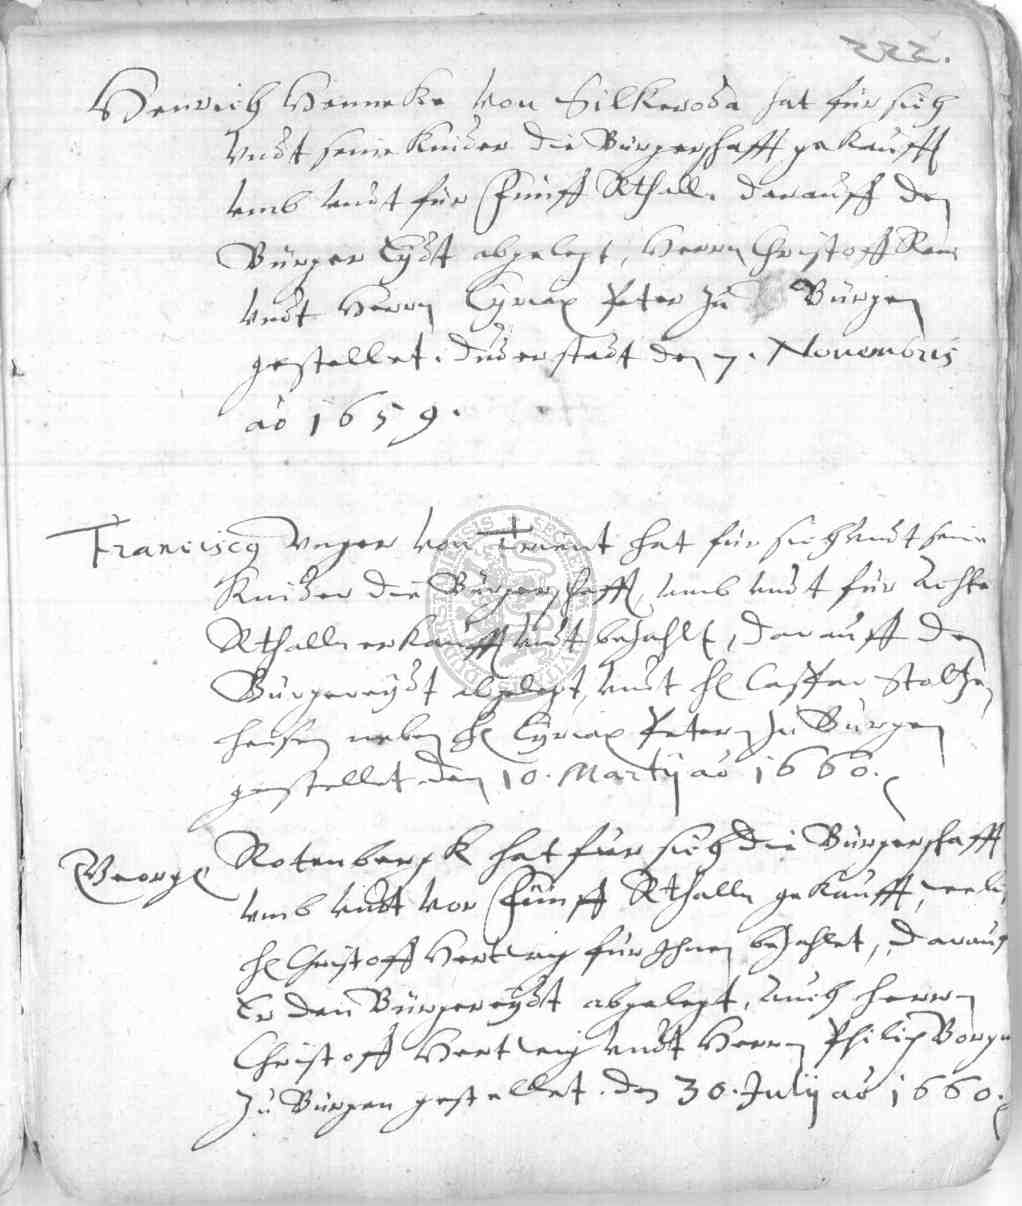 Henrich Henneke von Silkeroda hat für sich
vndt seine Kinder die Bürgerschafft gekaufft
vmb vndt für Fünff Rthall. darauff den
Bürger Eydt abgelegt, Herrn Christoff
vndt Herrn Cyriax Peter zu Bürgen
gestellet. Duderstadt den 7. Novembris
ao 1659.
Franciscus Unger von Trient hat für sich vndt seine
Kinder die Bürgerschafft, vmb vndt für Achte
Rthall erkaufft vndt bezahlt, darauff den
Bürgereydt abgelegt, vndt H Casspar Stoltzen
hausen neben H Cyriax Petern zu Bürgen
gestellet den 10. Martij ao 1660.
Georg Rotenbergk hat für sich die Bürgerschafft
vmb vndt vor Fünff Rthall gekaufft,
H Christoff Hertwig für Ihnen bezahlet, darauff
Er den Bürgereydt abgelegt, auch Herrn
Christoff Hertwig vndt Herrn Philip
zu Bürgen gestellet. den 30. Julij ao 1660.